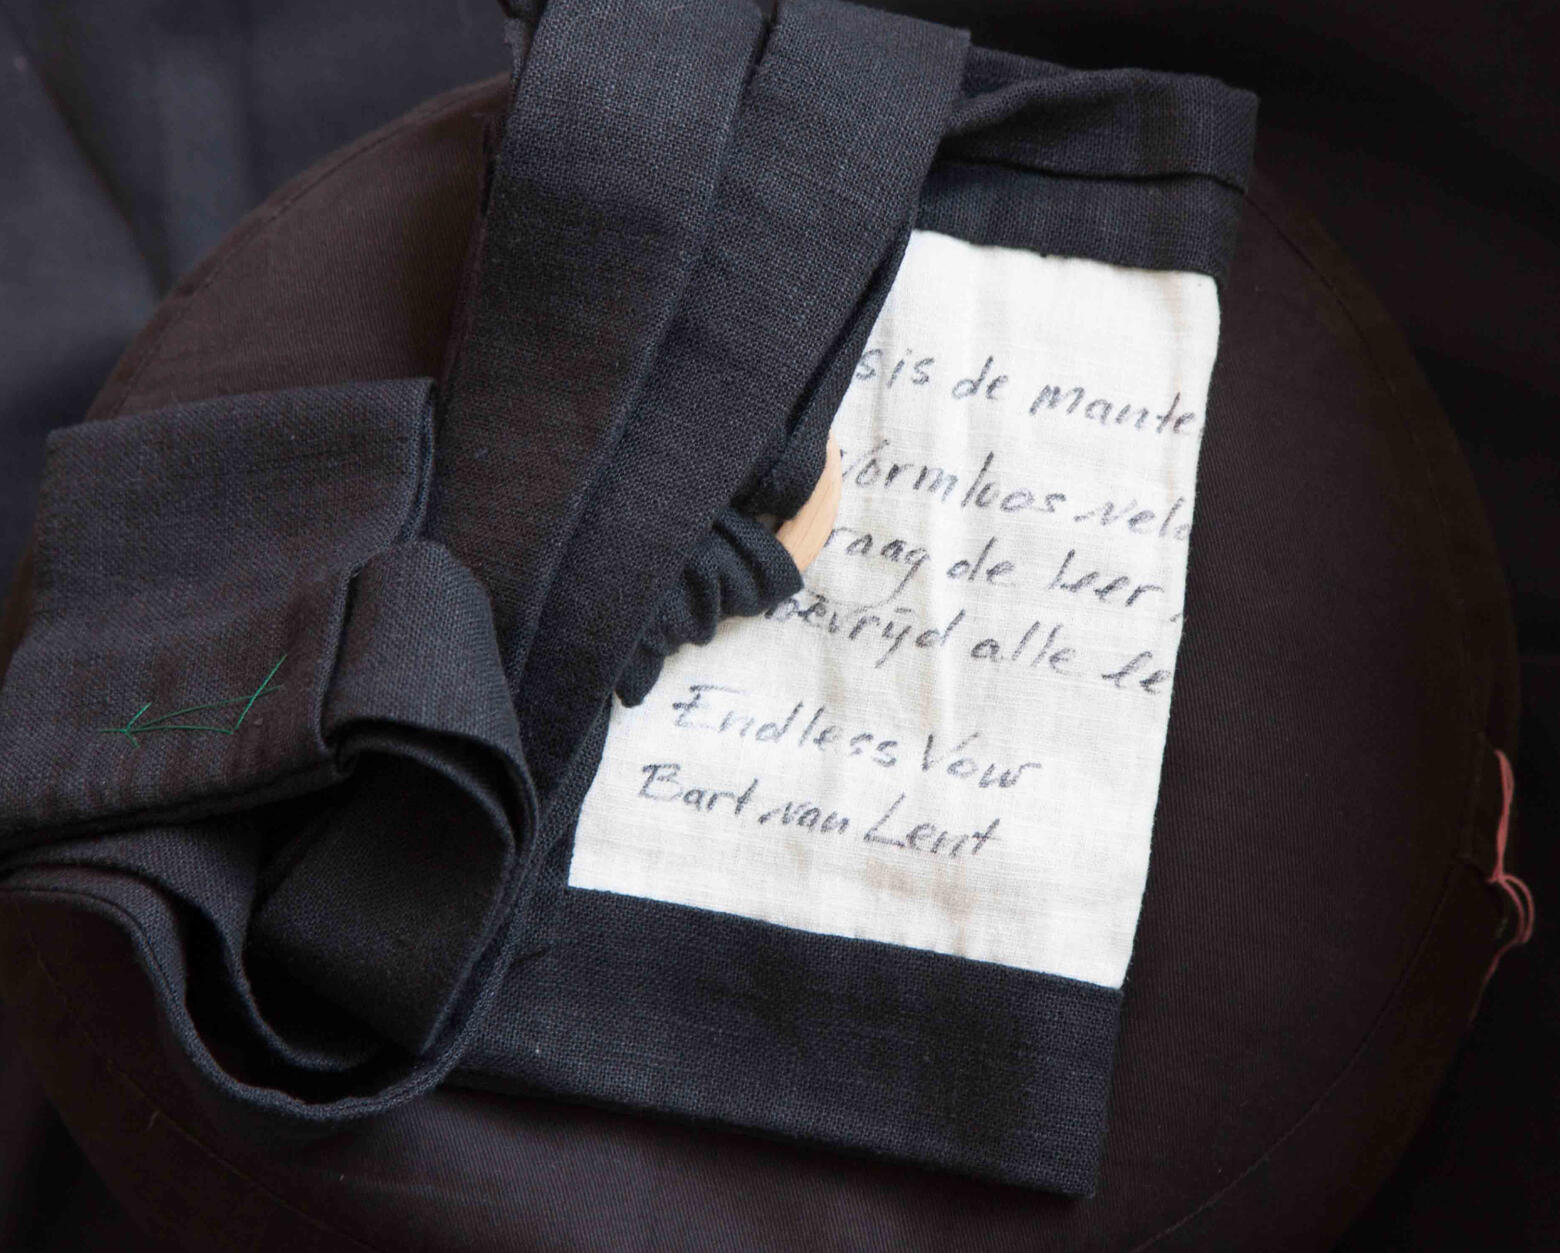 sis de mante
vormloos vel
raag de leer
bevrijd alle le
Endless Vow
Bart van Lent